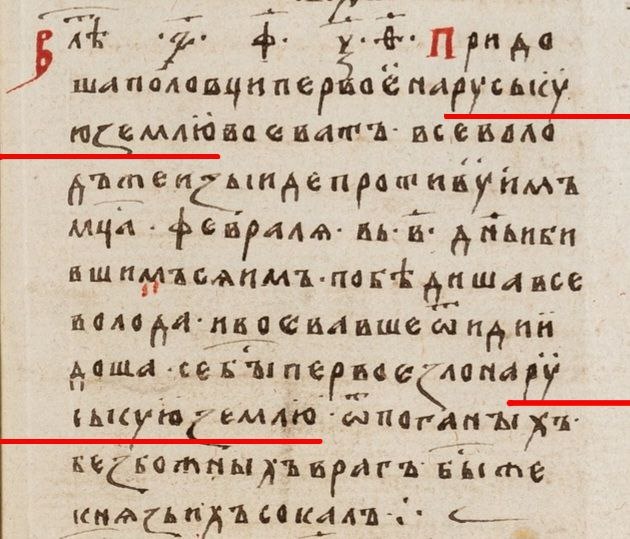 В лѣт · ҂ѕ · ф · ѯ · ѳ · Придо
ша половци первоє на русьску
ю землю воєватъ · всеволо
дъ же изыиде противу имъ
мца · февраля · въ · в · днь и би
вшимъся имъ · побѣдиша все
волода · и воєвавше ѿидии
доша · се бы первоє зло на ру
сьскую землю · ѿ поганыхъ ·
безбожныхъ врагъ · бы же
князь ихъ сокалъ ·:·